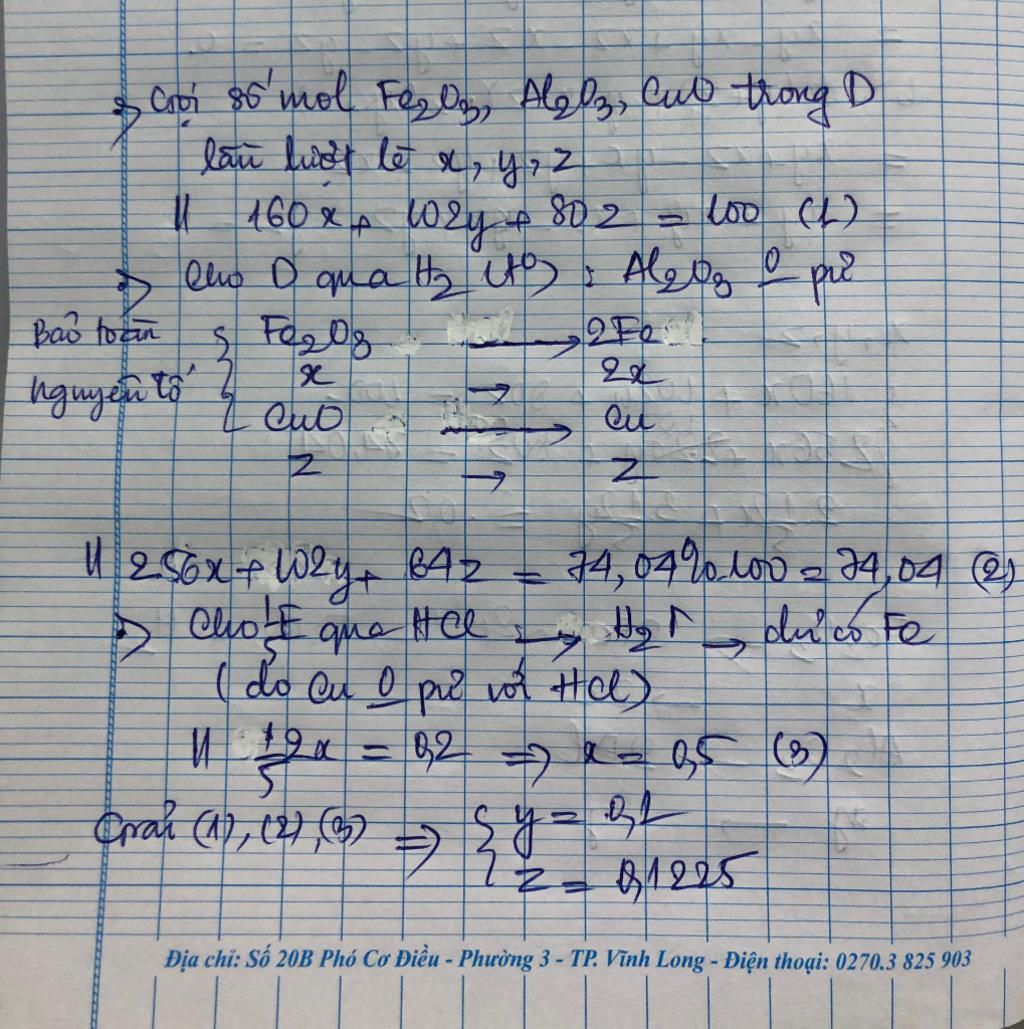 => Gọi số mol Fe2O3, Al2O3, CuO trong D
lần lượt là x, y, z
160x + 102y + 80z = 100 (1)
=> Cho D qua H2 (t°) : Al2O3 0 pứ
Bảo toàn nguyên tố
Fe2O3 → 2Fe
x → 2x
CuO → Cu
z → z
2.56x + 102y + 64z = 74,04%.100 = 74,04 (2)
=> Cho 1/5 E qua HCl → H2↑ → dư có Fe
(do Cu 0 pứ với HCl)
1/5 2x = 0,2 => x = 0,5 (3)
Giải (1), (2), (3) => { y = 0,1
z = 0,1225
Địa chỉ: Số 20B Phó Cơ Điều - Phường 3 - TP. Vĩnh Long - Điện thoại: 0270.3 825 903